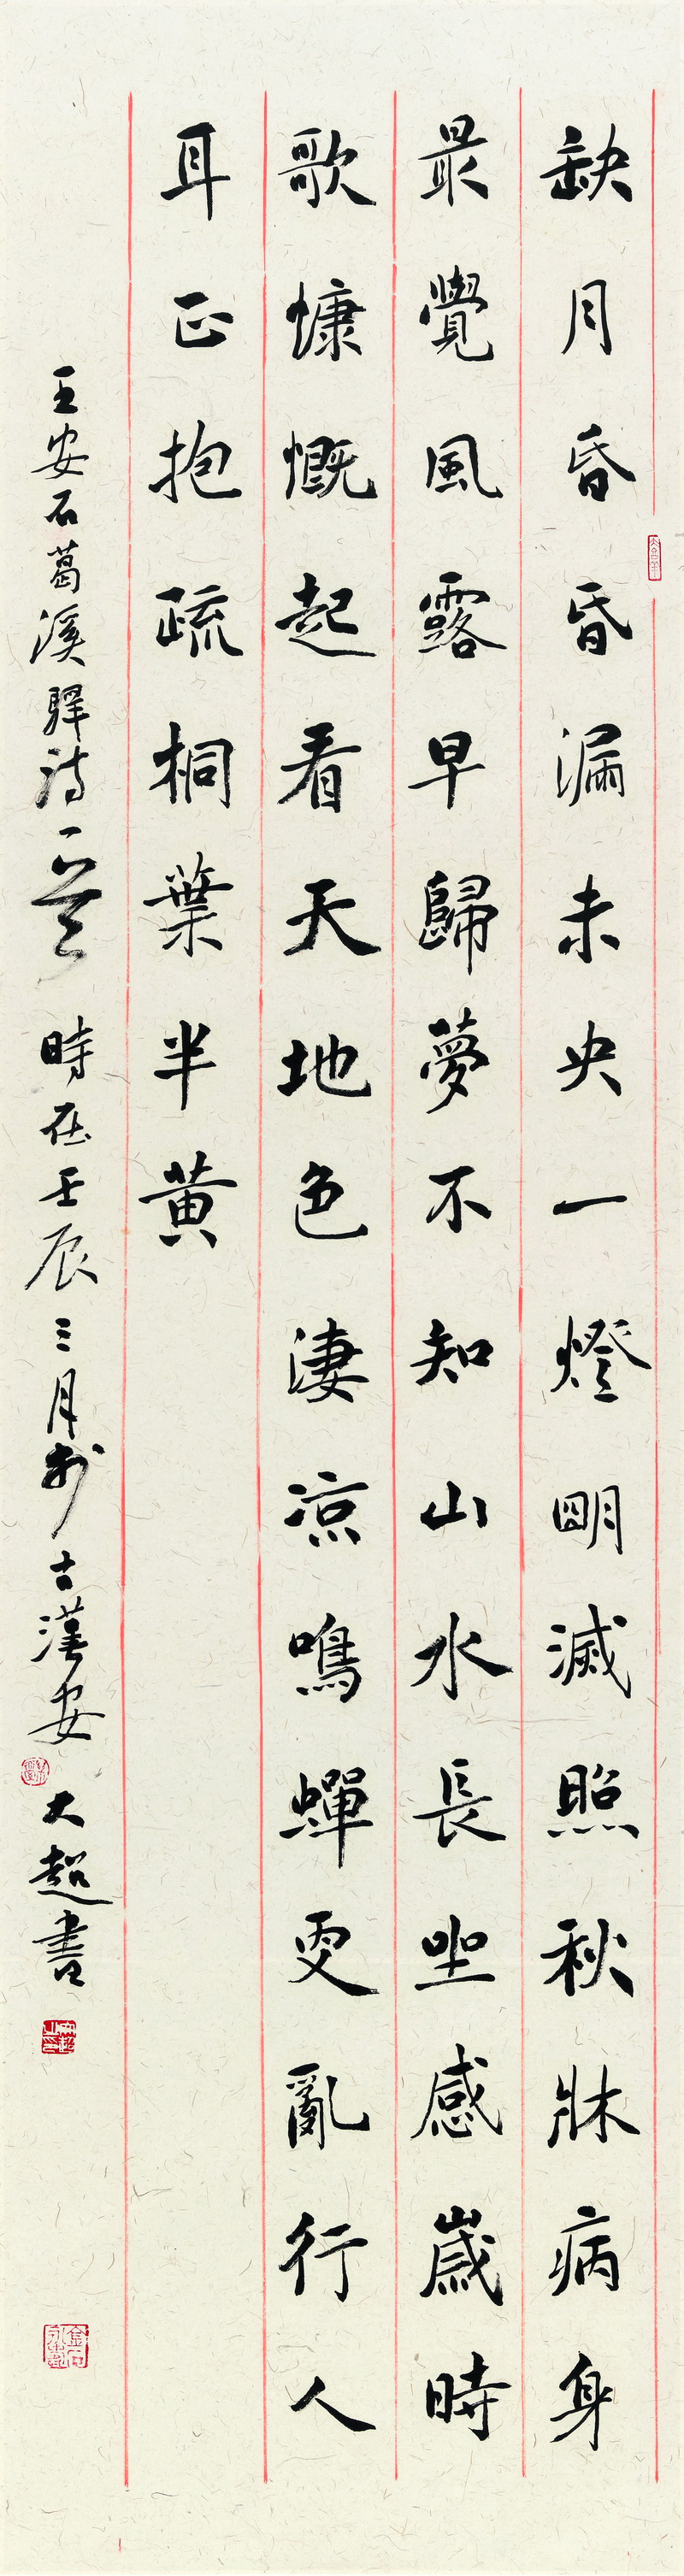 缺月昏昏漏未央一燈明滅照秋牀病身
最覺風露早歸夢不知山水長坐感歲時
歌慷慨起看天地色淒涼鳴蟬更亂行人
耳正抱疏桐葉半黃
王安石葛溪驛詩一首時在壬辰三月於古漢安大超書